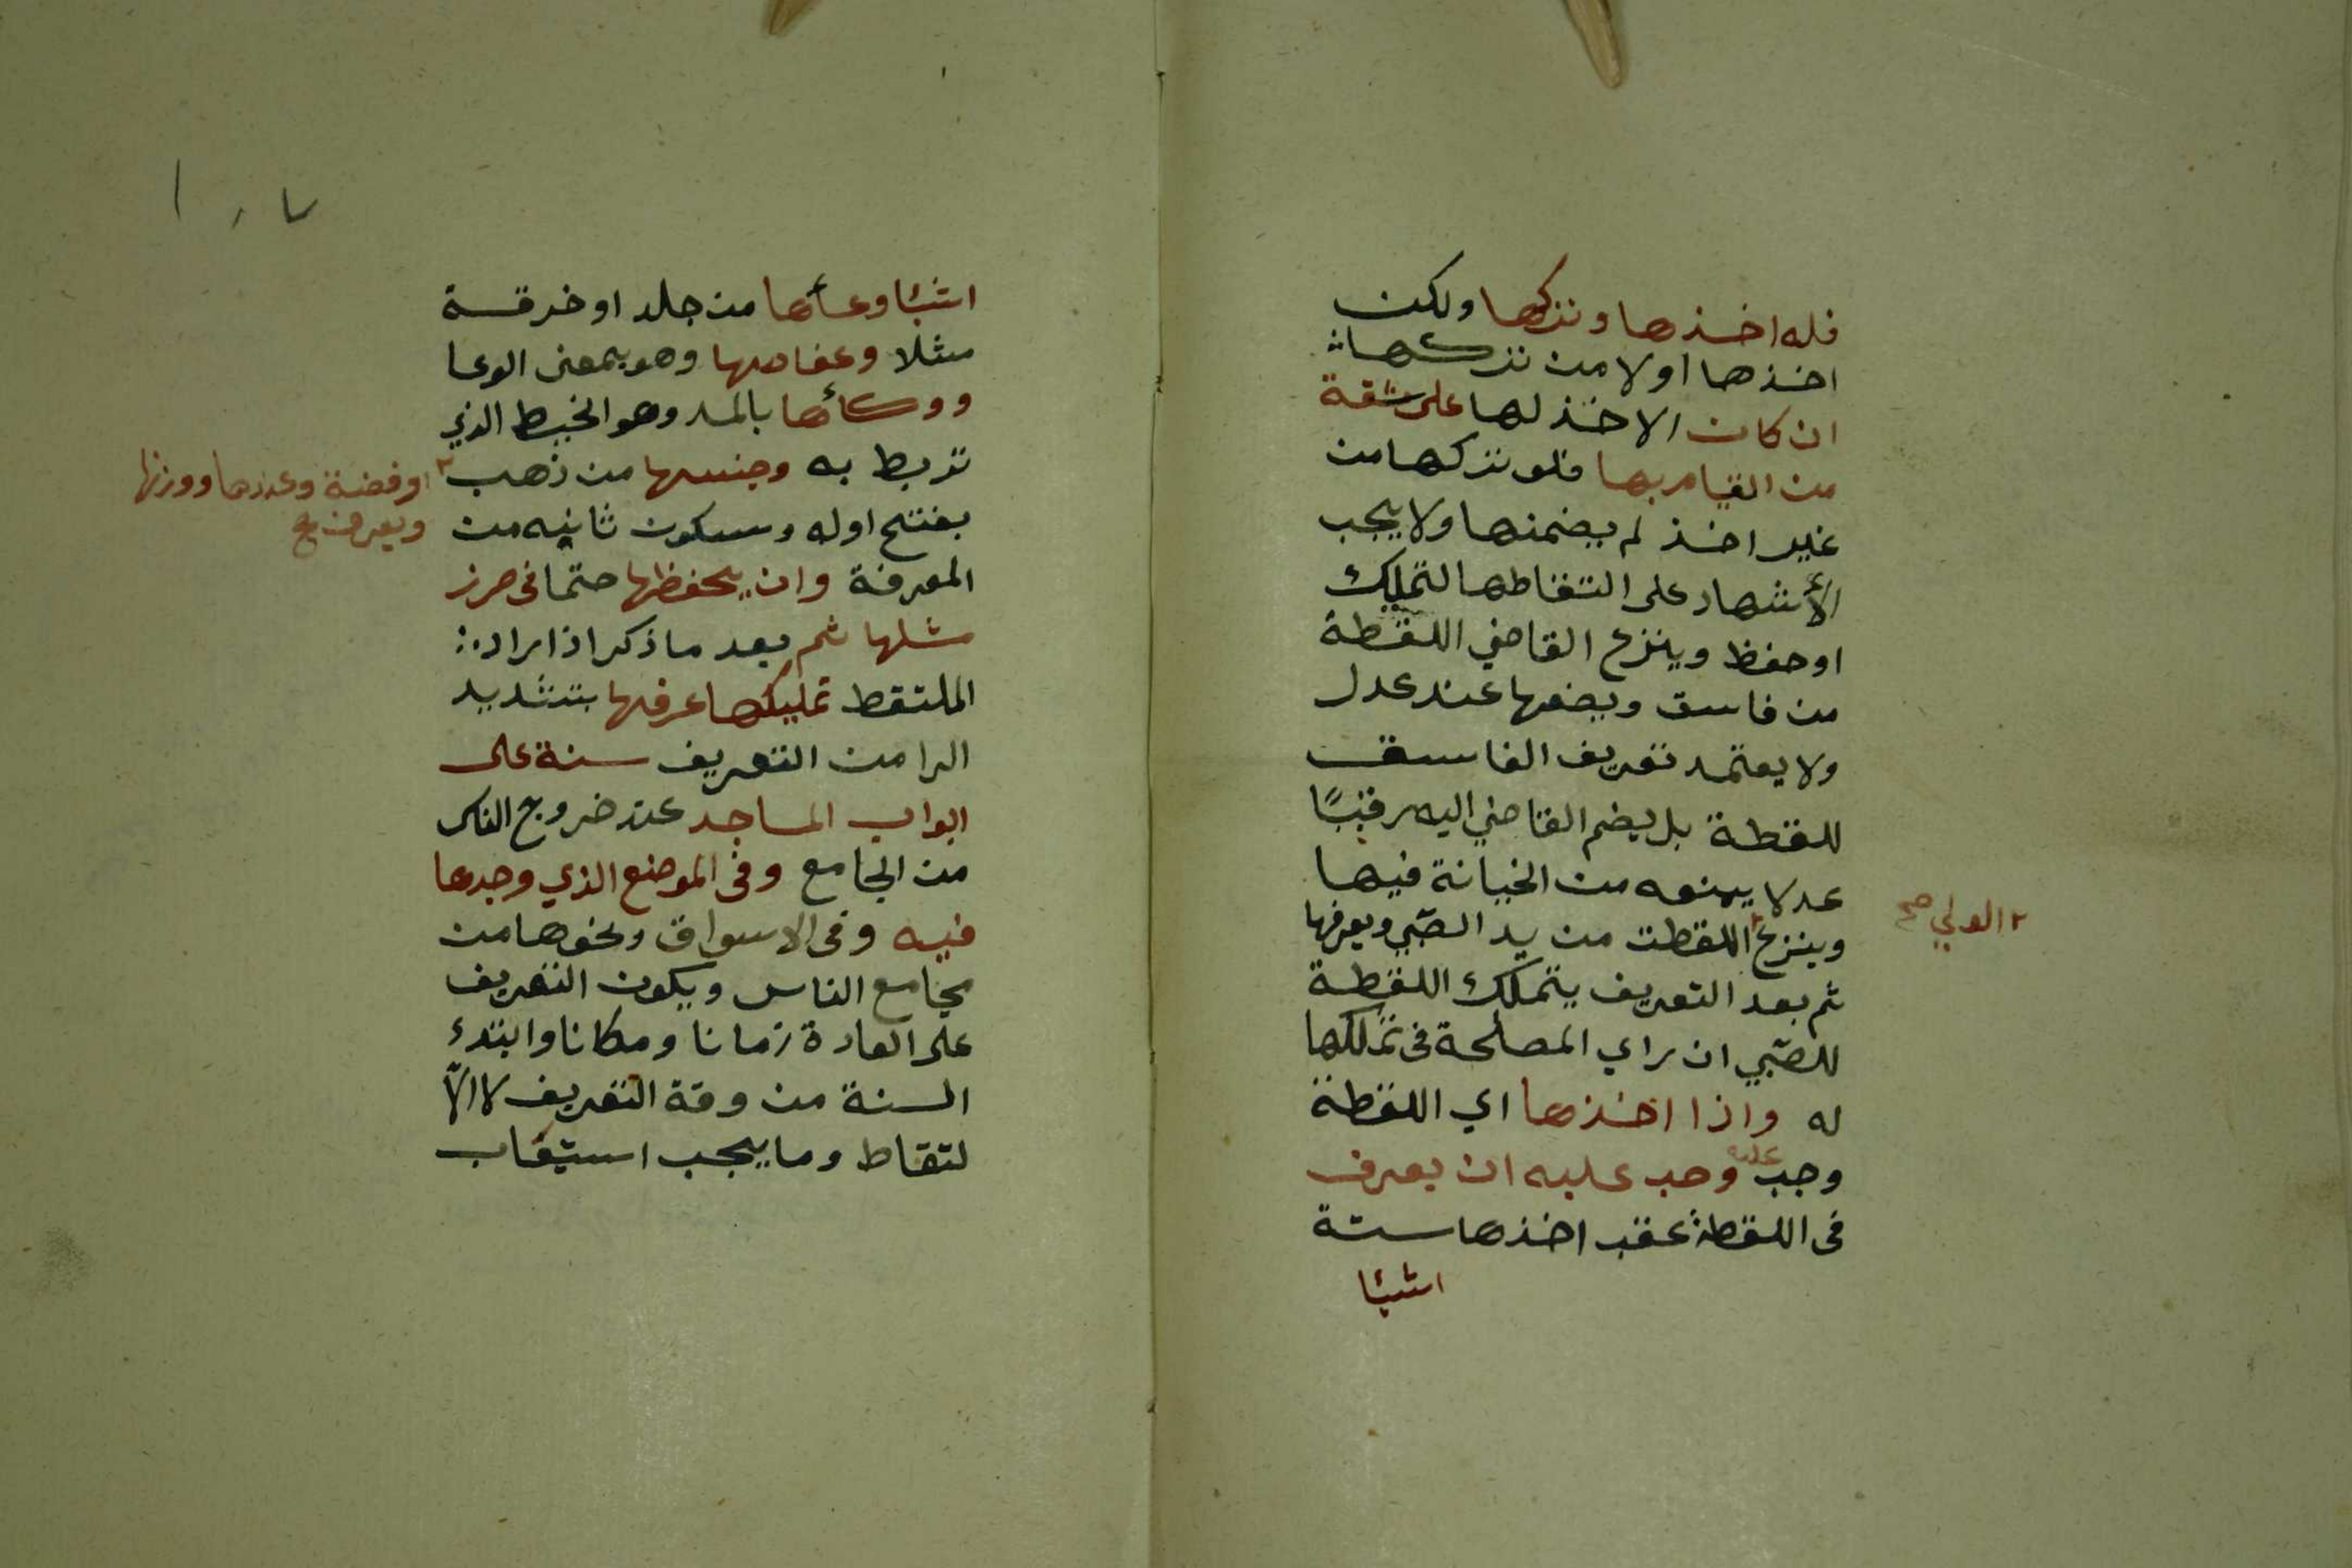 فله اخذها وتركها ولكن
اخذها اولا من تركها
ان كان الاخذ لها على ثقة
من القيام بها فلو تركها من
غير اخذ لم يضمنها ولا يجب
الأشهاد على التقاطها لتملك
او حفظ وينزع القاضي اللقطة
من فاسق ويضعها عند عدل
ولا يعتمد تعريف الفاسق
للقطة بل يضم القاضي اليه رقيبًا
عدلا يمنعه من الخيانة فيها
وينزع ٢ اللقطت من يد الصبي ويعرفها
٢ الولي صح
ثم بعد التعريف يتملك اللقطة
للصبي ان راي المصلحة في تملكها
له واذا اخذها اي اللقطة
وجب عليه وجب عليه ان يعرف
في اللقطة عقب اخذها ستة
اشيئا
اشيئا وعأها من جلد او خرقة
مثلا وعفاصها وهو بمعنى الوعا
ووكأها بالمد وهو الخيط الذي
تربط به وجنسها من ذهب ٢
او فضة وعددها ووزنها
ويعرف صح
بفتح اوله وسكون ثانيه من
المعرفة وان يحفظها حتما في حرز
مثلها ثم بعد ما ذكر اذا اراد
الملتقط تمليكها عرفها بتشديد
الرا من التعريف سنة على
ابواب المساجد عند خروج الناس
من الجامع وفي الموضع الذي وجدها
فيه وفي الاسواق ونحوها من
مجامع الناس ويكون التعريف
على العادة زمانا ومكانا وابتدء
السنة من وقة التعريف لا الآ
لتقاط وما يجب استيقاب